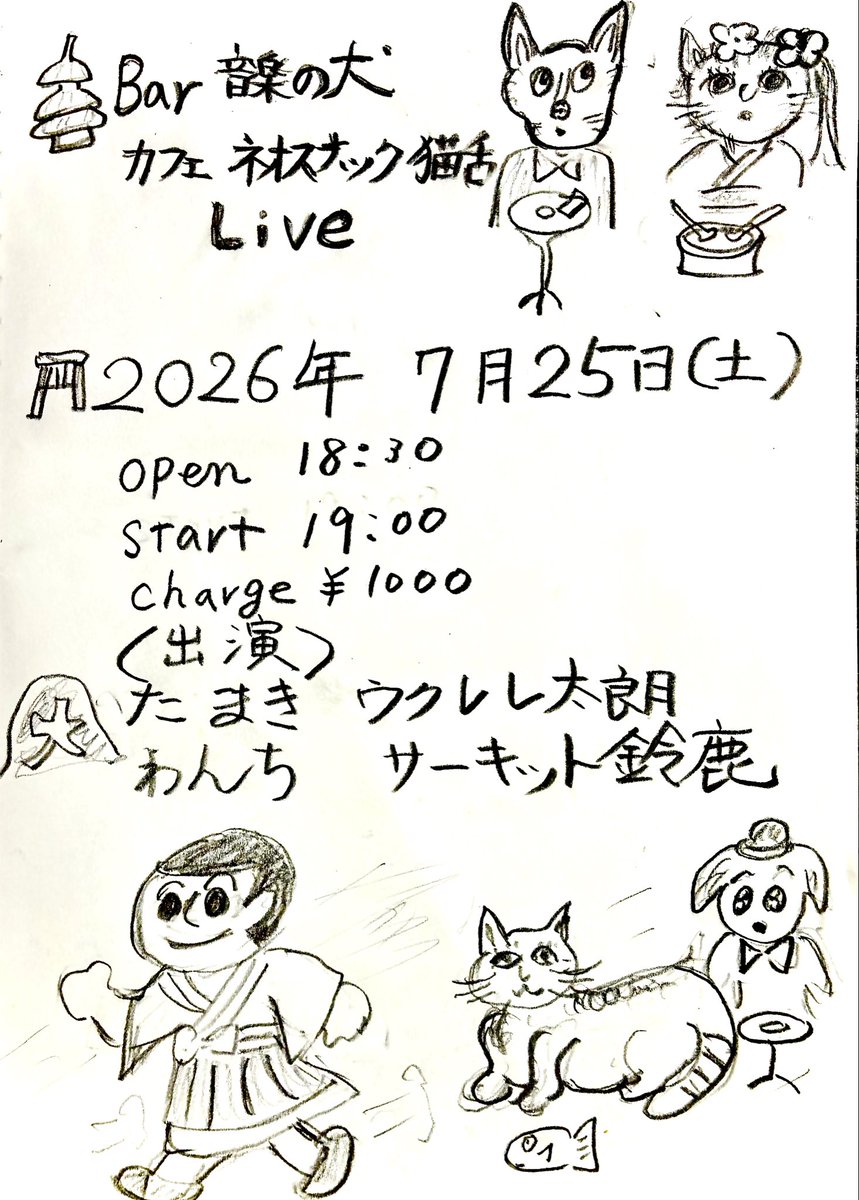 Bar 音楽の犬
カフェ ネオスナック 猫舌
Live
2026年 7月25日(土)
open 18:30
start 19:00
charge ¥1000
(出演)
たまき ウクレレ太朗
わんち サーキット鈴鹿
大